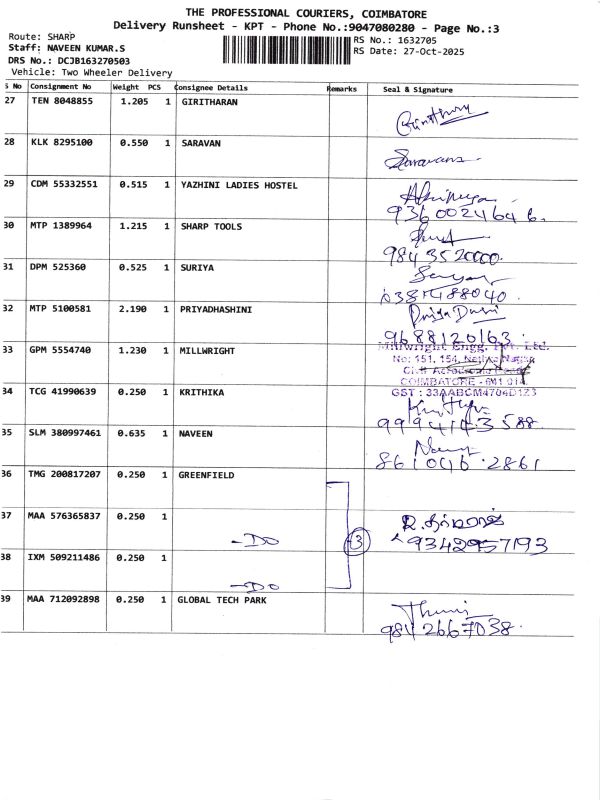 THE PROFESSIONAL COURIERS, COIMBATORE
Delivery Runsheet - KPT - Phone No.:9047080280 - Page No.:3
Route: SHARP
RS No.: 1632705
Staff: NAVEEN KUMAR.S
RS Date: 27-Oct-2025
DRS No.: DCJB163270503
Vehicle: Two Wheeler Delivery
S No Consignment No Weight PCS Consignee Details Remarks Seal & Signature
27 TEN 8048855 1.205 1 GIRITHARAN
28 KLK 8295100 0.550 1 SARAVAN
29 CDM 55332551 0.515 1 YAZHINI LADIES HOSTEL
9360024646.
30 MTP 1389964 1.215 1 SHARP TOOLS
9843520000.
31 DPM 525360 0.525 1 SURIYA
32 MTP 5100581 2.190 1 PRIYADHASHINI
9688120163.
33 GPM 5554740 1.230 1 MILLWRIGHT
Millwright Engg. Pvt. Ltd.
No: 151, 154, Nehru Nagar
COIMBATORE - 641 014.
GST : 33AABCM4704D1Z3
34 TCG 41990639 0.250 1 KRITHIKA
35 SLM 380997461 0.635 1 NAVEEN
861046 2861
36 TMG 200817207 0.250 1 GREENFIELD
37 MAA 576365837 0.250 1
-DO
3
9342957193
38 IXM 509211486 0.250 1
-DO
39 MAA 712092898 0.250 1 GLOBAL TECH PARK
9842667038.